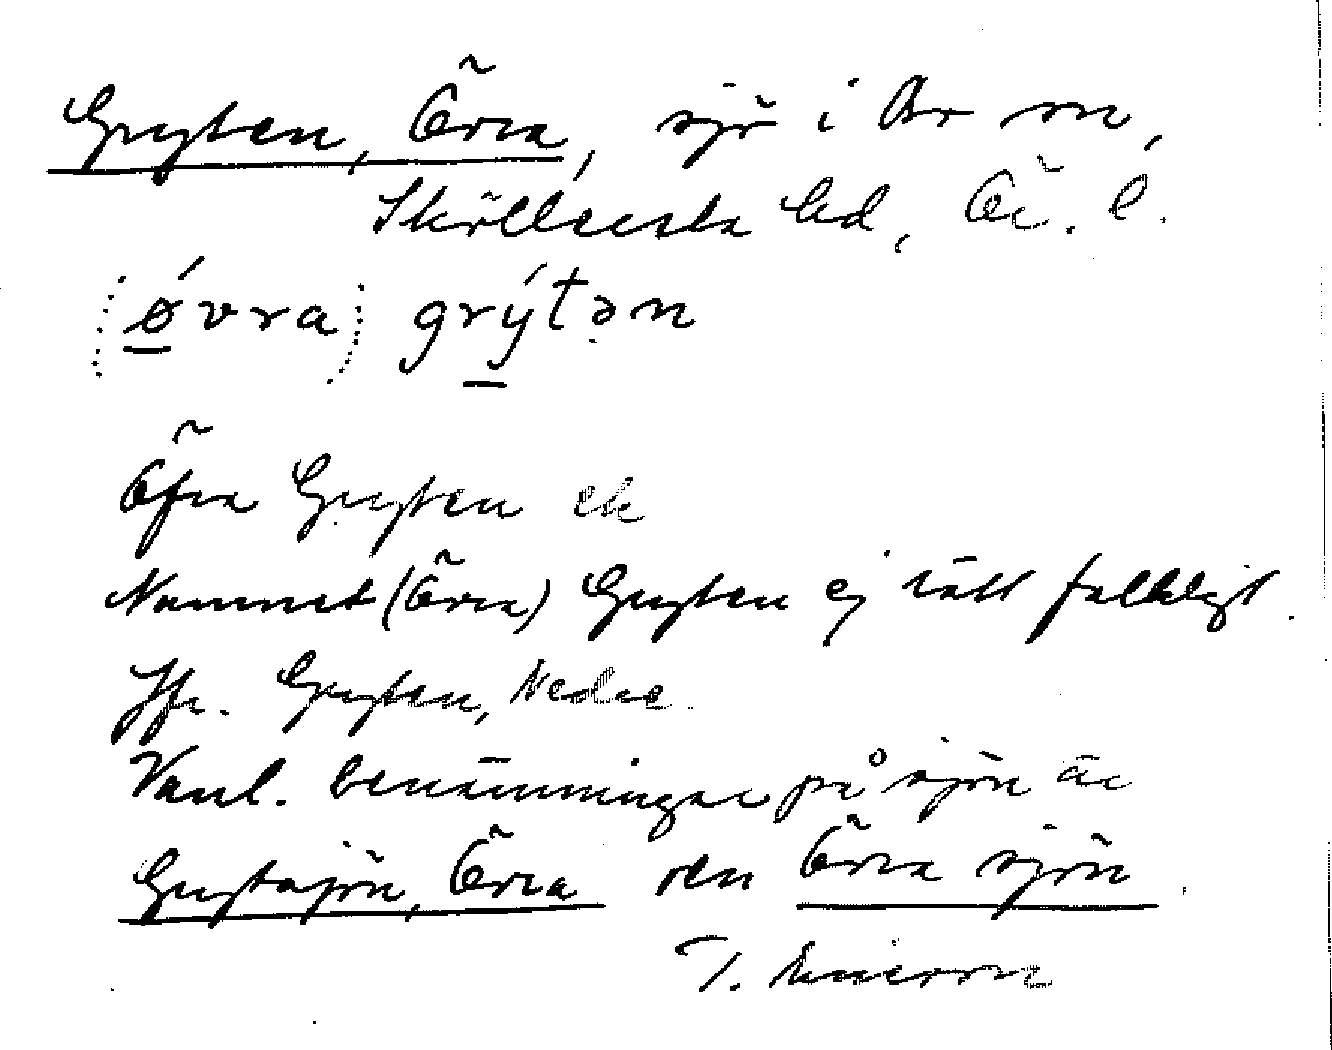 Gryten, Övra, sjö i Bo sn,
Sköllersta hd, Ör. l.
(ǿvra) grýtən
Öfra Gryten ek
Namnet (Övra) Gryten ej rätt folkligt.
Jfr. Gryten, Nedre.
Vanl. benämningar på sjön är
Grytsjön, Övra och Övra sjön.
T. Ericsson